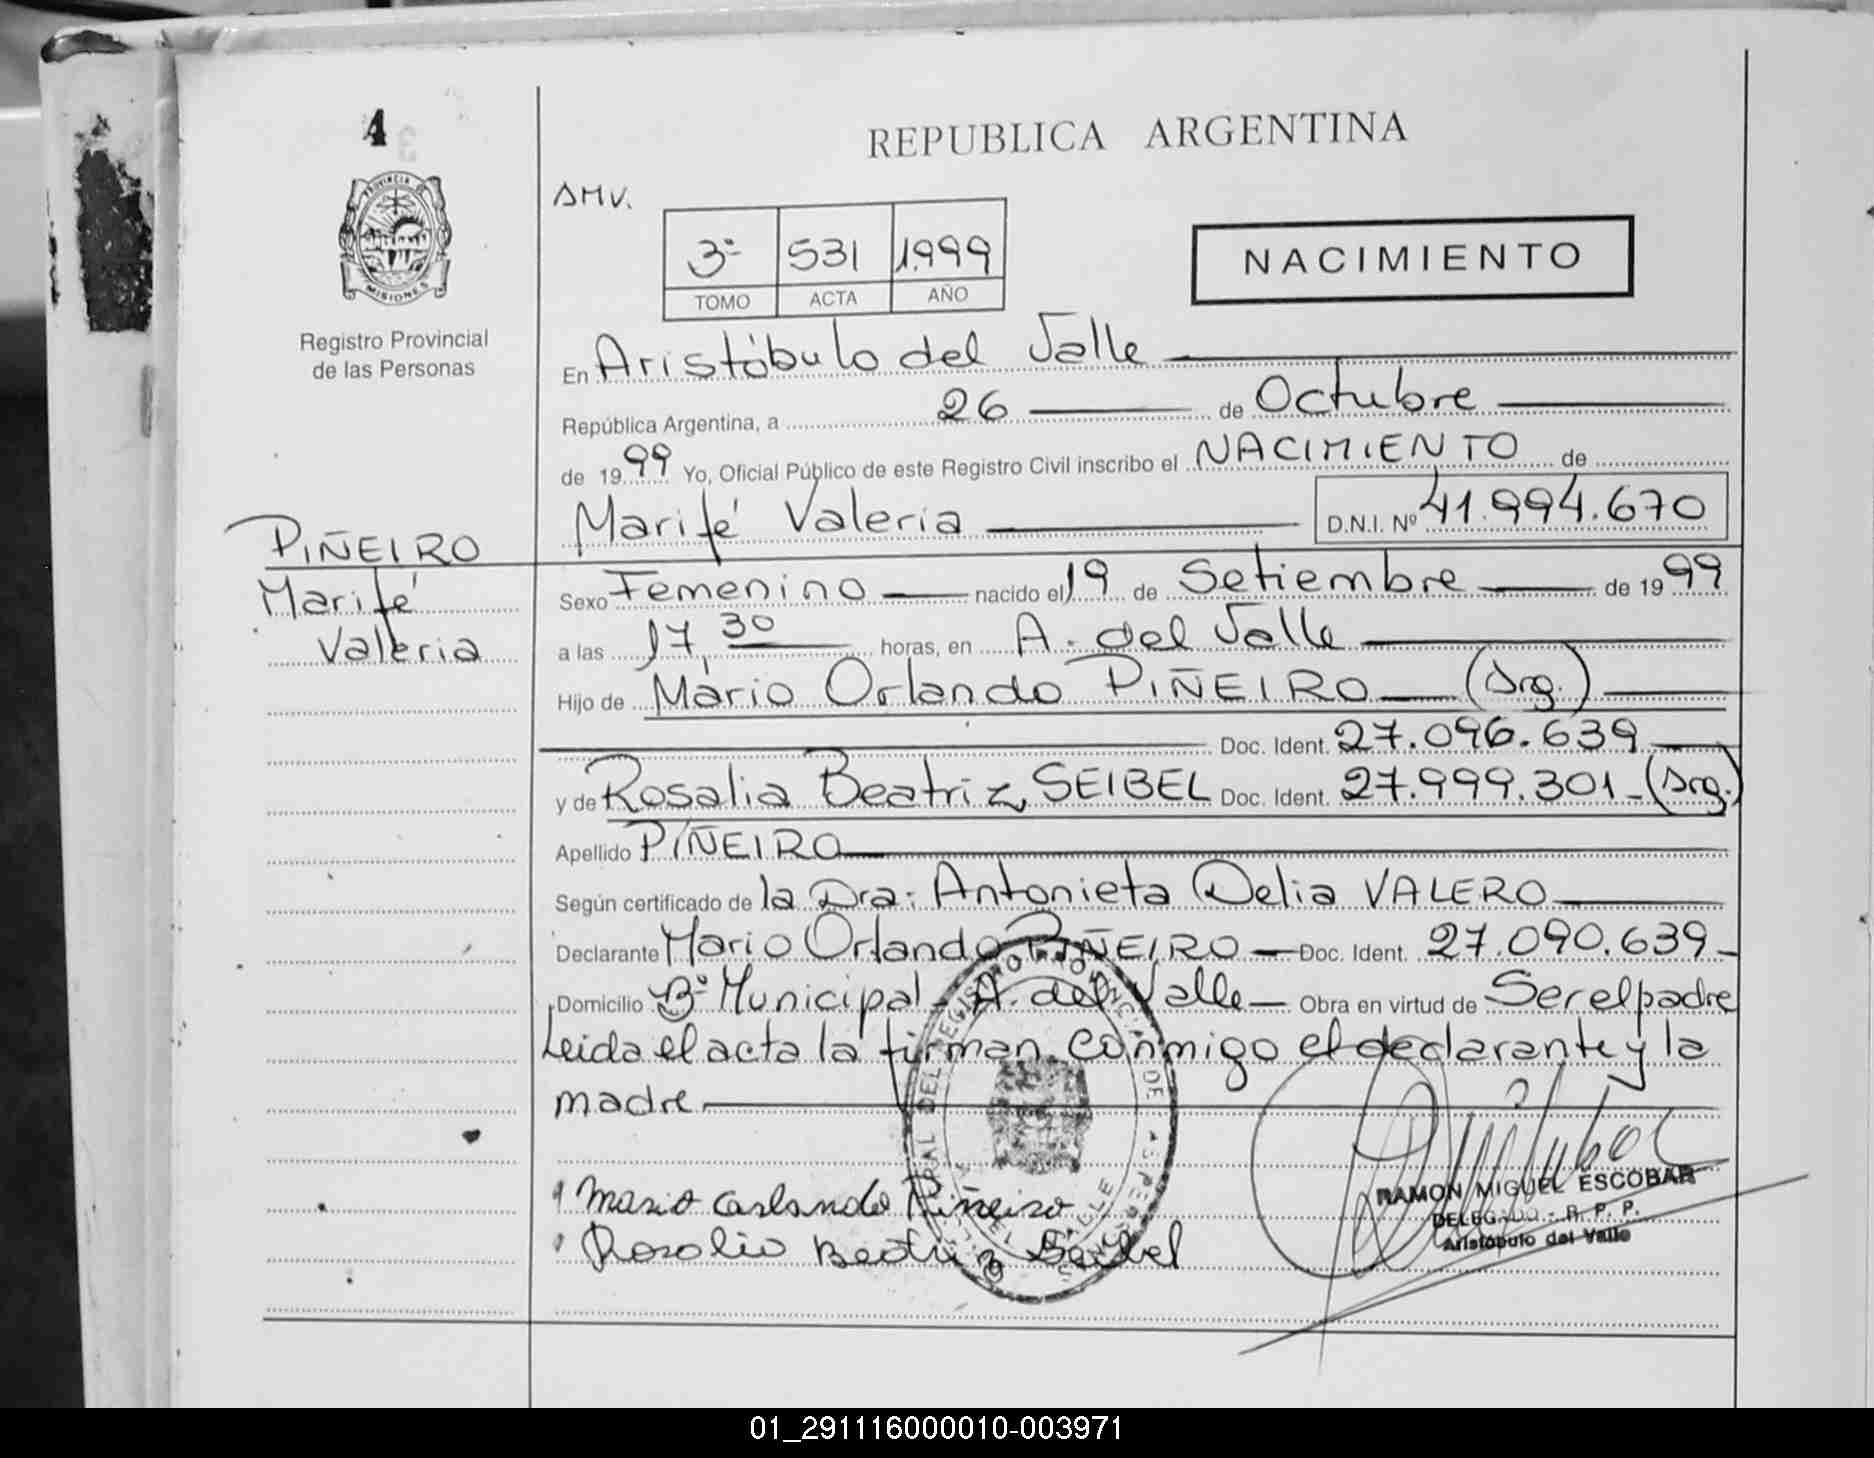 4
PROVINCIA DE
MISIONES
Registro Provincial
de las Personas
PIÑEIRO
Marifé
Valeria
REPUBLICA ARGENTINA
AMV.
3º 531 1.999
TOMO ACTA AÑO
NACIMIENTO
En Aristóbulo del Valle
República Argentina, a 26 de Octubre
de 1999 Yo, Oficial Público de este Registro Civil inscribo el NACIMIENTO de
Marifé Valeria D.N.I. Nº 41.994.670
Sexo Femenino nacido el 19 de Setiembre de 1999
a las 17,30 horas, en A. del Valle
Hijo de Mario Orlando PIÑEIRO (Arg.)
Doc. Ident. 27.096.639
y de Rosalia Beatriz SEIBEL Doc. Ident. 27.999.301 (Arg.)
Apellido PIÑEIRO
Según certificado de la Dra: Antonieta Delia VALERO
Declarante Mario Orlando PIÑEIRO Doc. Ident. 27.090.639
Domicilio Bº Municipal A. del Valle Obra en virtud de Ser el padre
Leida el acta la firman conmigo el declarante y la
madre
Mario Orlando Piñeiro
Rosalia Beatriz Seibel
RAMON MIGUEL ESCOBAR
DELEGADO - R. P. P.
Aristóbulo del Valle
01_291116000010-003971